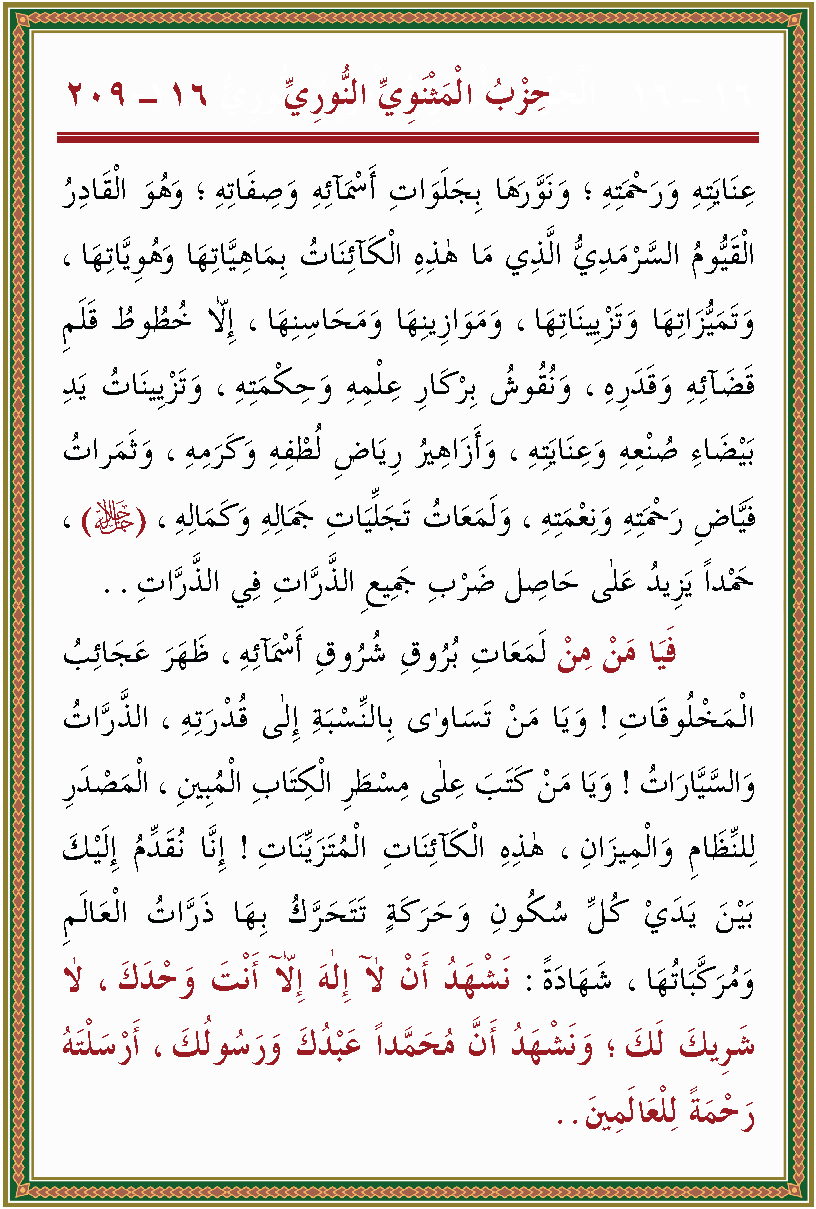 حِزْبُ الْمَثْنَوِيِّ النُّورِيِّ ١٦ ـ ٢٠٩
عِنَايَتِهِ وَرَحْمَتِهِ ؛ وَنَوَّرَهَا بِجَلَوَاتِ أَسْمَآئِهِ وَصِفَاتِهِ ؛ وَهُوَ الْقَادِرُ
الْقَيُّومُ السَّرْمَدِيُّ الَّذِي مَا هٰذِهِ الْكَآئِنَاتُ بِمَاهِيَّاتِهَا وَهُوِيَّاتِهَا ،
وَتَمَيُّزَاتِهَا وَتَزْيِينَاتِهَا ، وَمَوَازِينِهَا وَمَحَاسِنِهَا ، إِلاَّ خُطُوطُ قَلَمِ
قَضَآئِهِ وَقَدَرِهِ ، وَنُقُوشُ بِرْكَارِ عِلْمِهِ وَحِكْمَتِهِ ، وَتَزْيِينَاتُ يَدِ
بَيْضَاءِ صُنْعِهِ وَعِنَايَتِهِ ، وَأَزَاهِيرُ رِيَاضِ لُطْفِهِ وَكَرَمِهِ ، وَثَمَرَاتُ
فَيَّاضِ رَحْمَتِهِ وَنِعْمَتِهِ ، وَلَمَعَاتُ تَجَلِّيَاتِ جَمَالِهِ وَكَمَالِهِ ، (ﷻ) ،
حَمْداً يَزِيدُ عَلٰى حَاصِلِ ضَرْبِ جَمِيعِ الذَّرَّاتِ فِي الذَّرَّاتِ . .
فَيَا مَنْ مِنْ لَمَعَاتِ بُرُوقِ شُرُوقِ أَسْمَآئِهِ ، ظَهَرَ عَجَائِبُ
الْمَخْلُوقَاتِ ! وَيَا مَنْ تَسَاوٰى بِالنِّسْبَةِ إِلٰى قُدْرَتِهِ ، الذَّرَّاتُ
وَالسَّيَّارَاتُ ! وَيَا مَنْ كَتَبَ عَلٰى مِسْطَرِ الْكِتَابِ الْمُبِينِ ، الْمَصْدَرِ
لِلنِّظَامِ وَالْمِيزَانِ ، هٰذِهِ الْكَآئِنَاتِ الْمُتَزَيِّنَاتِ ! إِنَّا نُقَدِّمُ إِلَيْكَ
بَيْنَ يَدَيْ كُلِّ سُكُونٍ وَحَرَكَةٍ تَتَحَرَّكُ بِهَا ذَرَّاتُ الْعَالَمِ
وَمُرَكَّبَاتُهَا ، شَهَادَةً : نَشْهَدُ أَنْ لآٰ إِلٰهَ إِلآَّ أَنْتَ وَحْدَكَ ، لاٰ
شَرِيكَ لَكَ ؛ وَنَشْهَدُ أَنَّ مُحَمَّداً عَبْدُكَ وَرَسُولُكَ ، أَرْسَلْتَهُ
رَحْمَةً لِلْعَالَمِينَ . .